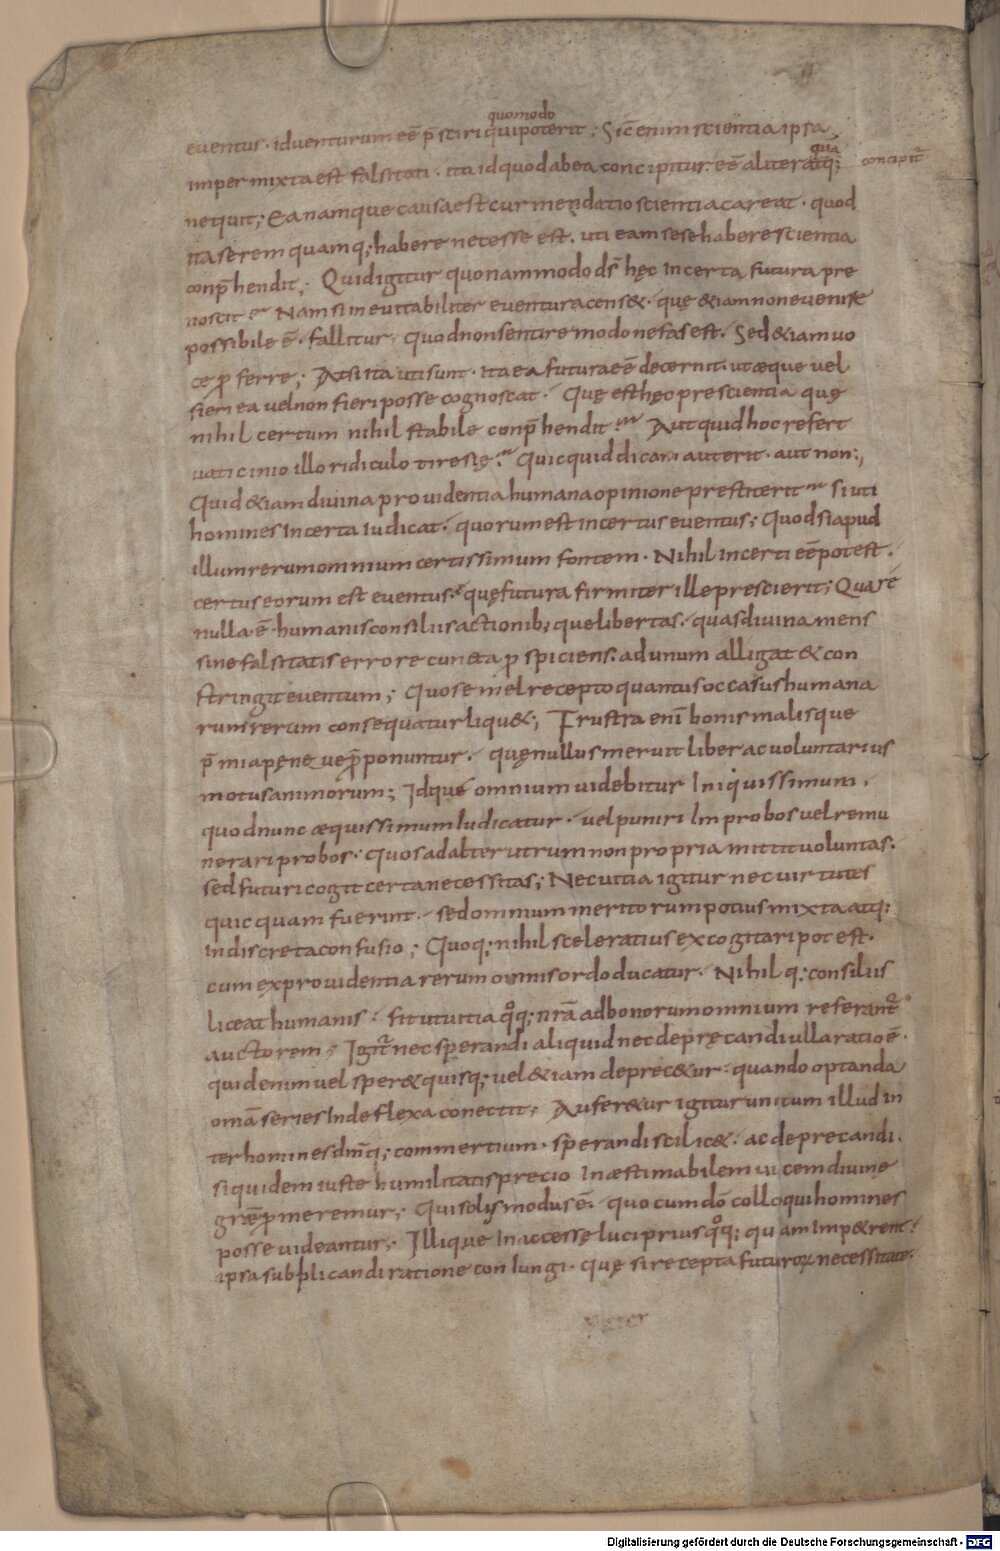 quomodo
euentus · id uenturum eẽ p̄sciri qui poterit ; Sic̄ enim scientia ipsa
quia
inpermixta est falsitati · ita id quod ab ea concipitur · eẽ aliter atq; concipit᷑
nequit ; Ea namque causa est cur mendatio scientia careat · quod
ita se rem quamq; habere necesse est · uti eam sese habere scientia
conp̄hendit ; Quid igitur quonam modo dš hęc incerta futura pre
noscit Nam si ineuitabiliter euentura cens& · quę &iam non euenire
possibile ē · fallitur · quod non sentire modo nefas est · Sed &iam uo
ce ꝓferre ; At si ita uti sunt · ita ea futura eẽ decernit · ut æque uel
fieri ea uel non fieri posse cognoscat · Quę est hęc prescientia quę
nihil certum nihil stabile conp̄hendit Aut quid hoc refert
uaticinio illo ridiculo tiresię Quicquid dicam aut erit · aut non ;
Quid &iam diuina prouidentia humana opinione prestiterit si uti
homines incerta iudicat · quorum est incertus euentus ; Quod si apud
illum rerum omnium certissimum fontem · Nihil incerti eẽ potest ·
certus eorum est euentus · quę futura firmiter ille prescierit ; Quare
nulla ē humanis consiliis actionib; que libertas · quas diuina mens
sine falsitatis errore cuncta ꝑspiciens · ad unum alligat & con
stringit euentum ; Quo semel recepto quantus occasus humana
rum rerum consequatur liqu& ; Frustra enī bonis malisque
p̄mia pęnę ue p̄ponuntur · quę nullus meruit liber ac uoluntarius
motus animorum ; Idque omnium uidebitur iniquissimum ·
quod nunc æquissimum iudicatur · uel puniri improbos uel remu
nerari probos · quos ad alterutrum non propria mittit uoluntas ·
sed futuri cogit certa necessitas ; Nec uitia igitur nec uirtutes
quicquam fuerint · sed omnium meritorum potius mixta atq;
indiscreta confusio ; Quoq; nihil sceleratius excogitari potest ·
cum ex prouidentia rerum omnis ordo ducatur · Nihil q; consiliis
liceat humanis · fit ut uitia qͦq; nr̄a ad bonorum omnium referant᷑
auctorem ; Igit᷑ nec sperandi aliquid nec deprecandi ulla ratio ē ·
quid enim uel sper& quisq; uel &iam deprec&ur · quando optanda
omā series indeflexa conectit ; Aufer&ur igitur unicum illud in
ter homines dm̄q; commertium · sperandi scilic& · ac deprecandi ·
siquidem iuste humilitatis precio inæstimabilem uicem diuinę
grę̄ ꝓmeremur ; Qui solus modus ē · quo cum dō colloqui homines
posse uideantur ; Illique inaccessę luci prius qͦq; quam imp&rent
ipsa supplicandi ratione coniungi · quę si recepta futuroꝝ necessitate